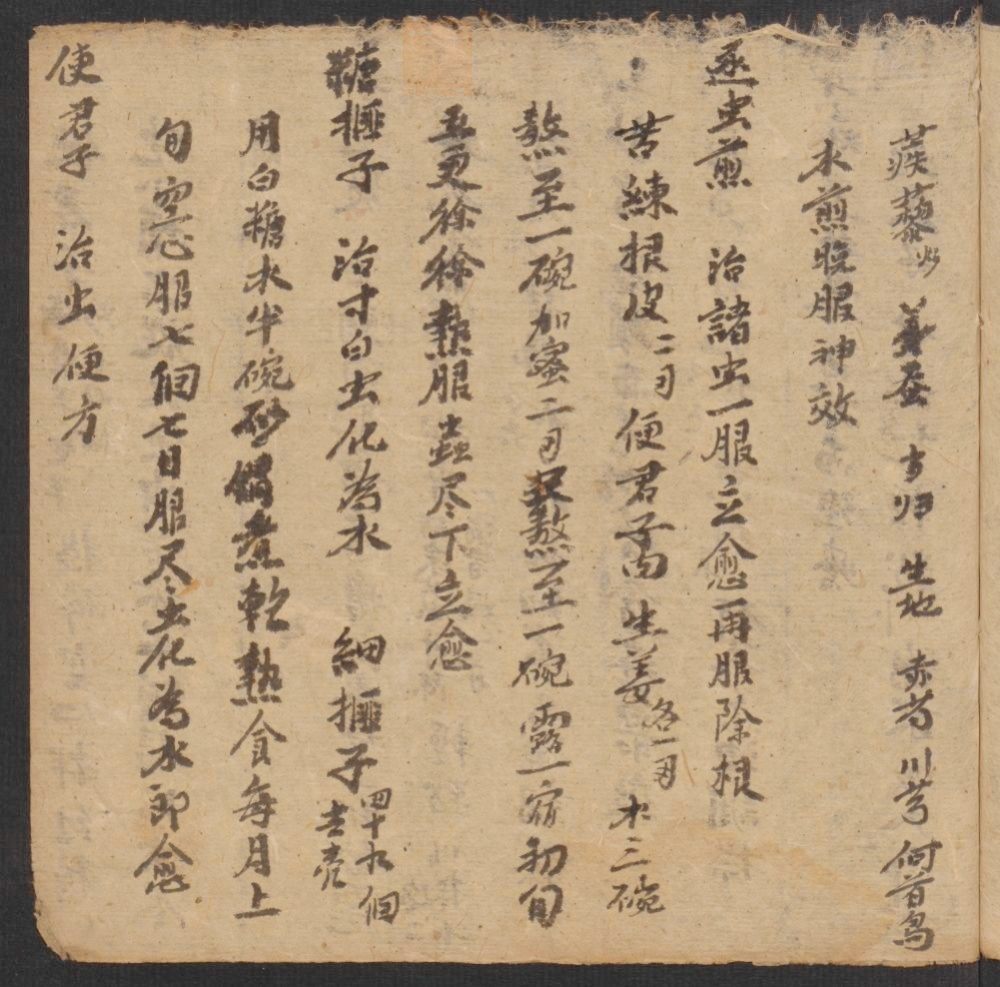 蒺藜炒 姜蚕 当归 生地 赤芍 川芎 何首烏
水煎晚服神效
逐虫煎 治諸虫一服立愈再服除根
苦練根皮二刄 使君子肉 生姜各一刄 水三碗
熬至一碗加蜜二刄又熬至一碗露一宿初旬
五更徐徐热服蟲尽下立愈
糖榧子 治寸白虫化為水 細榧子四十九個去壳
用白糖水半碗砂鍋煮乾熱食每月上
旬空心服七個七日服尽虫化為水即愈
使君子 治虫便方